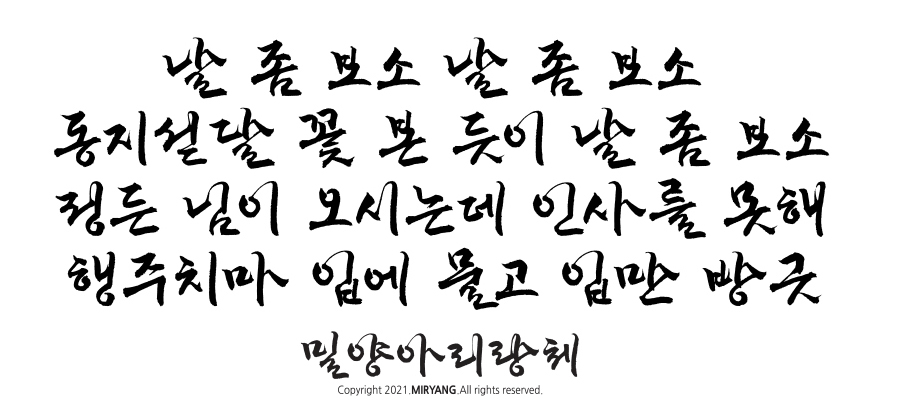 날 좀 보소 날 좀 보소
동지섣달 꽃 본 듯이 날 좀 보소
정든 님이 오시는데 인사를 못해
행주치마 입에 물고 입만 방긋
밀양아리랑체
Copyright 2021.MIRYANG.All rights reserved.